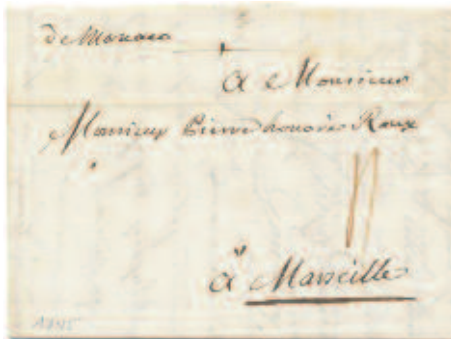 de Monaco
A Monsieur
Monsieur Pierre honoré Roux
à Marseille